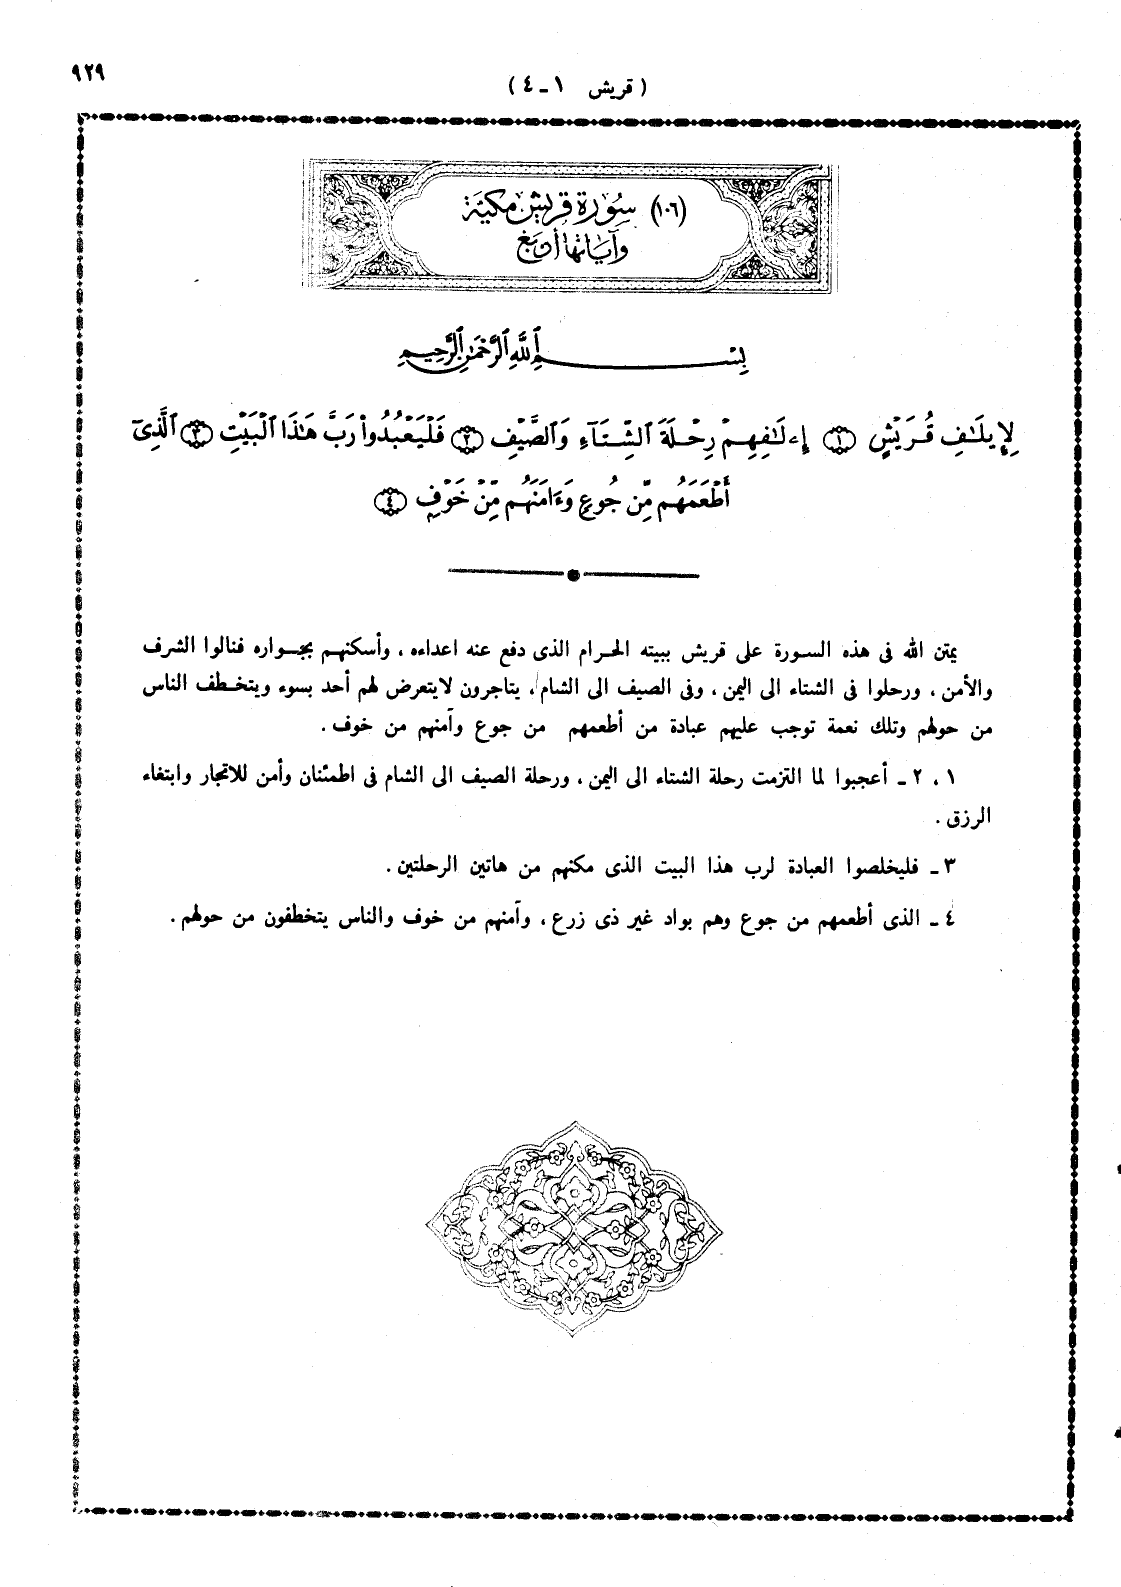 ٩٢٩
( قريش ١ ـ ٤ )
(١٠٦) سورة قريش مكية
وآياتها أربع
بِسْمِ ٱللَّهِ ٱلرَّحْمَٰنِ ٱلرَّحِيمِ
لِإِيلَٰفِ قُرَيْشٍ ﴿١﴾ إِۦلَٰفِهِمْ رِحْلَةَ ٱلشِّتَآءِ وَٱلصَّيْفِ ﴿٢﴾ فَلْيَعْبُدُوا۟ رَبَّ هَٰذَا ٱلْبَيْتِ ﴿٣﴾ ٱلَّذِىٓ
أَطْعَمَهُم مِّن جُوعٍ وَءَامَنَهُم مِّنْ خَوْفٍ ﴿٤﴾
يمتن الله فى هذه السورة على قريش ببيته الحرام الذى دفع عنه اعداءه ، وأسكنهم بجواره فنالوا الشرف
والأمن ، ورحلوا فى الشتاء الى اليمن ، وفى الصيف الى الشام ، يتاجرون لايتعرض لهم أحد بسوء ويتخطف الناس
من حولهم وتلك نعمة توجب عليهم عبادة من أطعمهم من جوع وآمنهم من خوف .
١ ، ٢ ـ أعجبوا لما التزمت رحلة الشتاء الى اليمن ، ورحلة الصيف الى الشام فى اطمئنان وأمن للاتجار وابتغاء
الرزق .
٣ ـ فليخلصوا العبادة لرب هذا البيت الذى مكنهم من هاتين الرحلتين .
٤ ـ الذى أطعمهم من جوع وهم بواد غير ذى زرع ، وآمنهم من خوف والناس يتخطفون من حولهم .